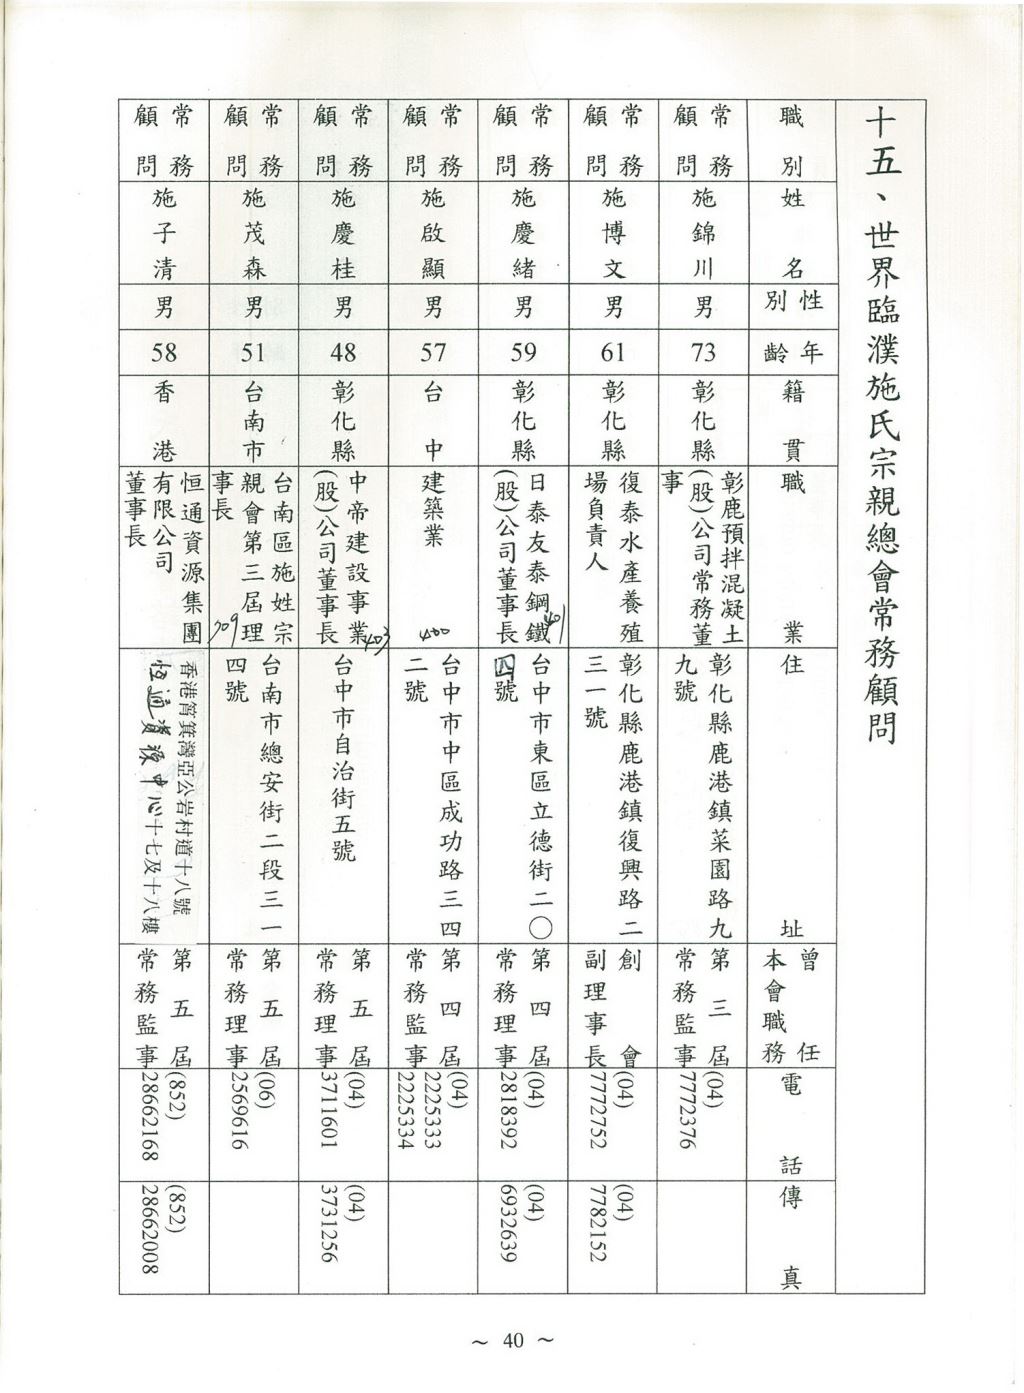 十五、世界臨濮施氏宗親總會常務顧問
職別
姓名
性別
年齡
籍貫
職業
住址
曾任本會職務
電話
傳真
常務顧問
施錦川
男
73
彰化縣
彰鹿預拌混凝土
(股)公司常務董
事
彰化縣鹿港鎮菜園路九
九號
第三屆
常務監事
(04)
7772376
常務顧問
施博文
男
61
彰化縣
復泰水產養殖
場負責人
彰化縣鹿港鎮復興路二
三一號
創會
副理事長
(04)
7772752
(04)
7782152
常務顧問
施慶緒
男
59
彰化縣
日泰友泰鋼鐵
(股)公司董事長
401
台中市東區立德街二〇
四號
第四屆
常務理事
(04)
2818392
(04)
6932639
常務顧問
施啟顯
男
57
台中
建築業
400
台中市中區成功路三四
二號
第四屆
常務監事
(04)
2225333
2225334
常務顧問
施慶桂
男
48
彰化縣
中帝建設事業
(股)公司董事長
403
台中市自治街五號
第五屆
常務理事
(04)
3711601
(04)
3731256
常務顧問
施茂森
男
51
台南市
台南區施姓宗
親會第三屆理
事長
709
台南市總安街二段三一
四號
第五屆
常務理事
(06)
2569616
常務顧問
施子清
男
58
香港
恒通資源集團
有限公司
董事長
香港筲箕灣亞公岩村道十八號
恆通資源中心十七及十八樓
第五屆
常務監事
(852)
28662168
(852)
28662008
~ 40 ~